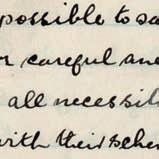 possible to sa
r careful an
all necessi
with their sche